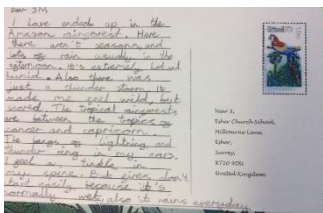 Dear 3M
I have ended up in the
Amazon rainforest. Here
there aren't seasons and
lots of rain usually in the
afternoon. It's extremely hot and
humid. Also there was
just a thunder storm, it
made me feel weird, but
scared. The tropical rainforests
are between the tropics
cancer and capricorn.
The bangs of lightning and
thunder ring in my ears.
I feel a tinkle in
my spine. But fires don't
last easily because it's
normally wet, also it rains everyday
Year 3,
Esher Church School,
Milbourne Lane,
Esher,
Surrey,
KT10 9DU
United Kingdom